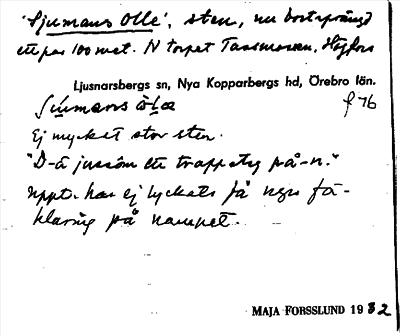 'Sjumans Olle', sten, nu bortsprängd
ett par 100 met. N torpet Tassmossen, Högfors
Ljusnarsbergs sn, Nya Kopparbergs hd, Örebro län.
f 76
Ej mycket stor sten.
"D-ä jussom ett trappsteg på-n."
Uppt. har ej lyckats få ngn för-
klaring på namnet.
MAJA FORSSLUND 1932